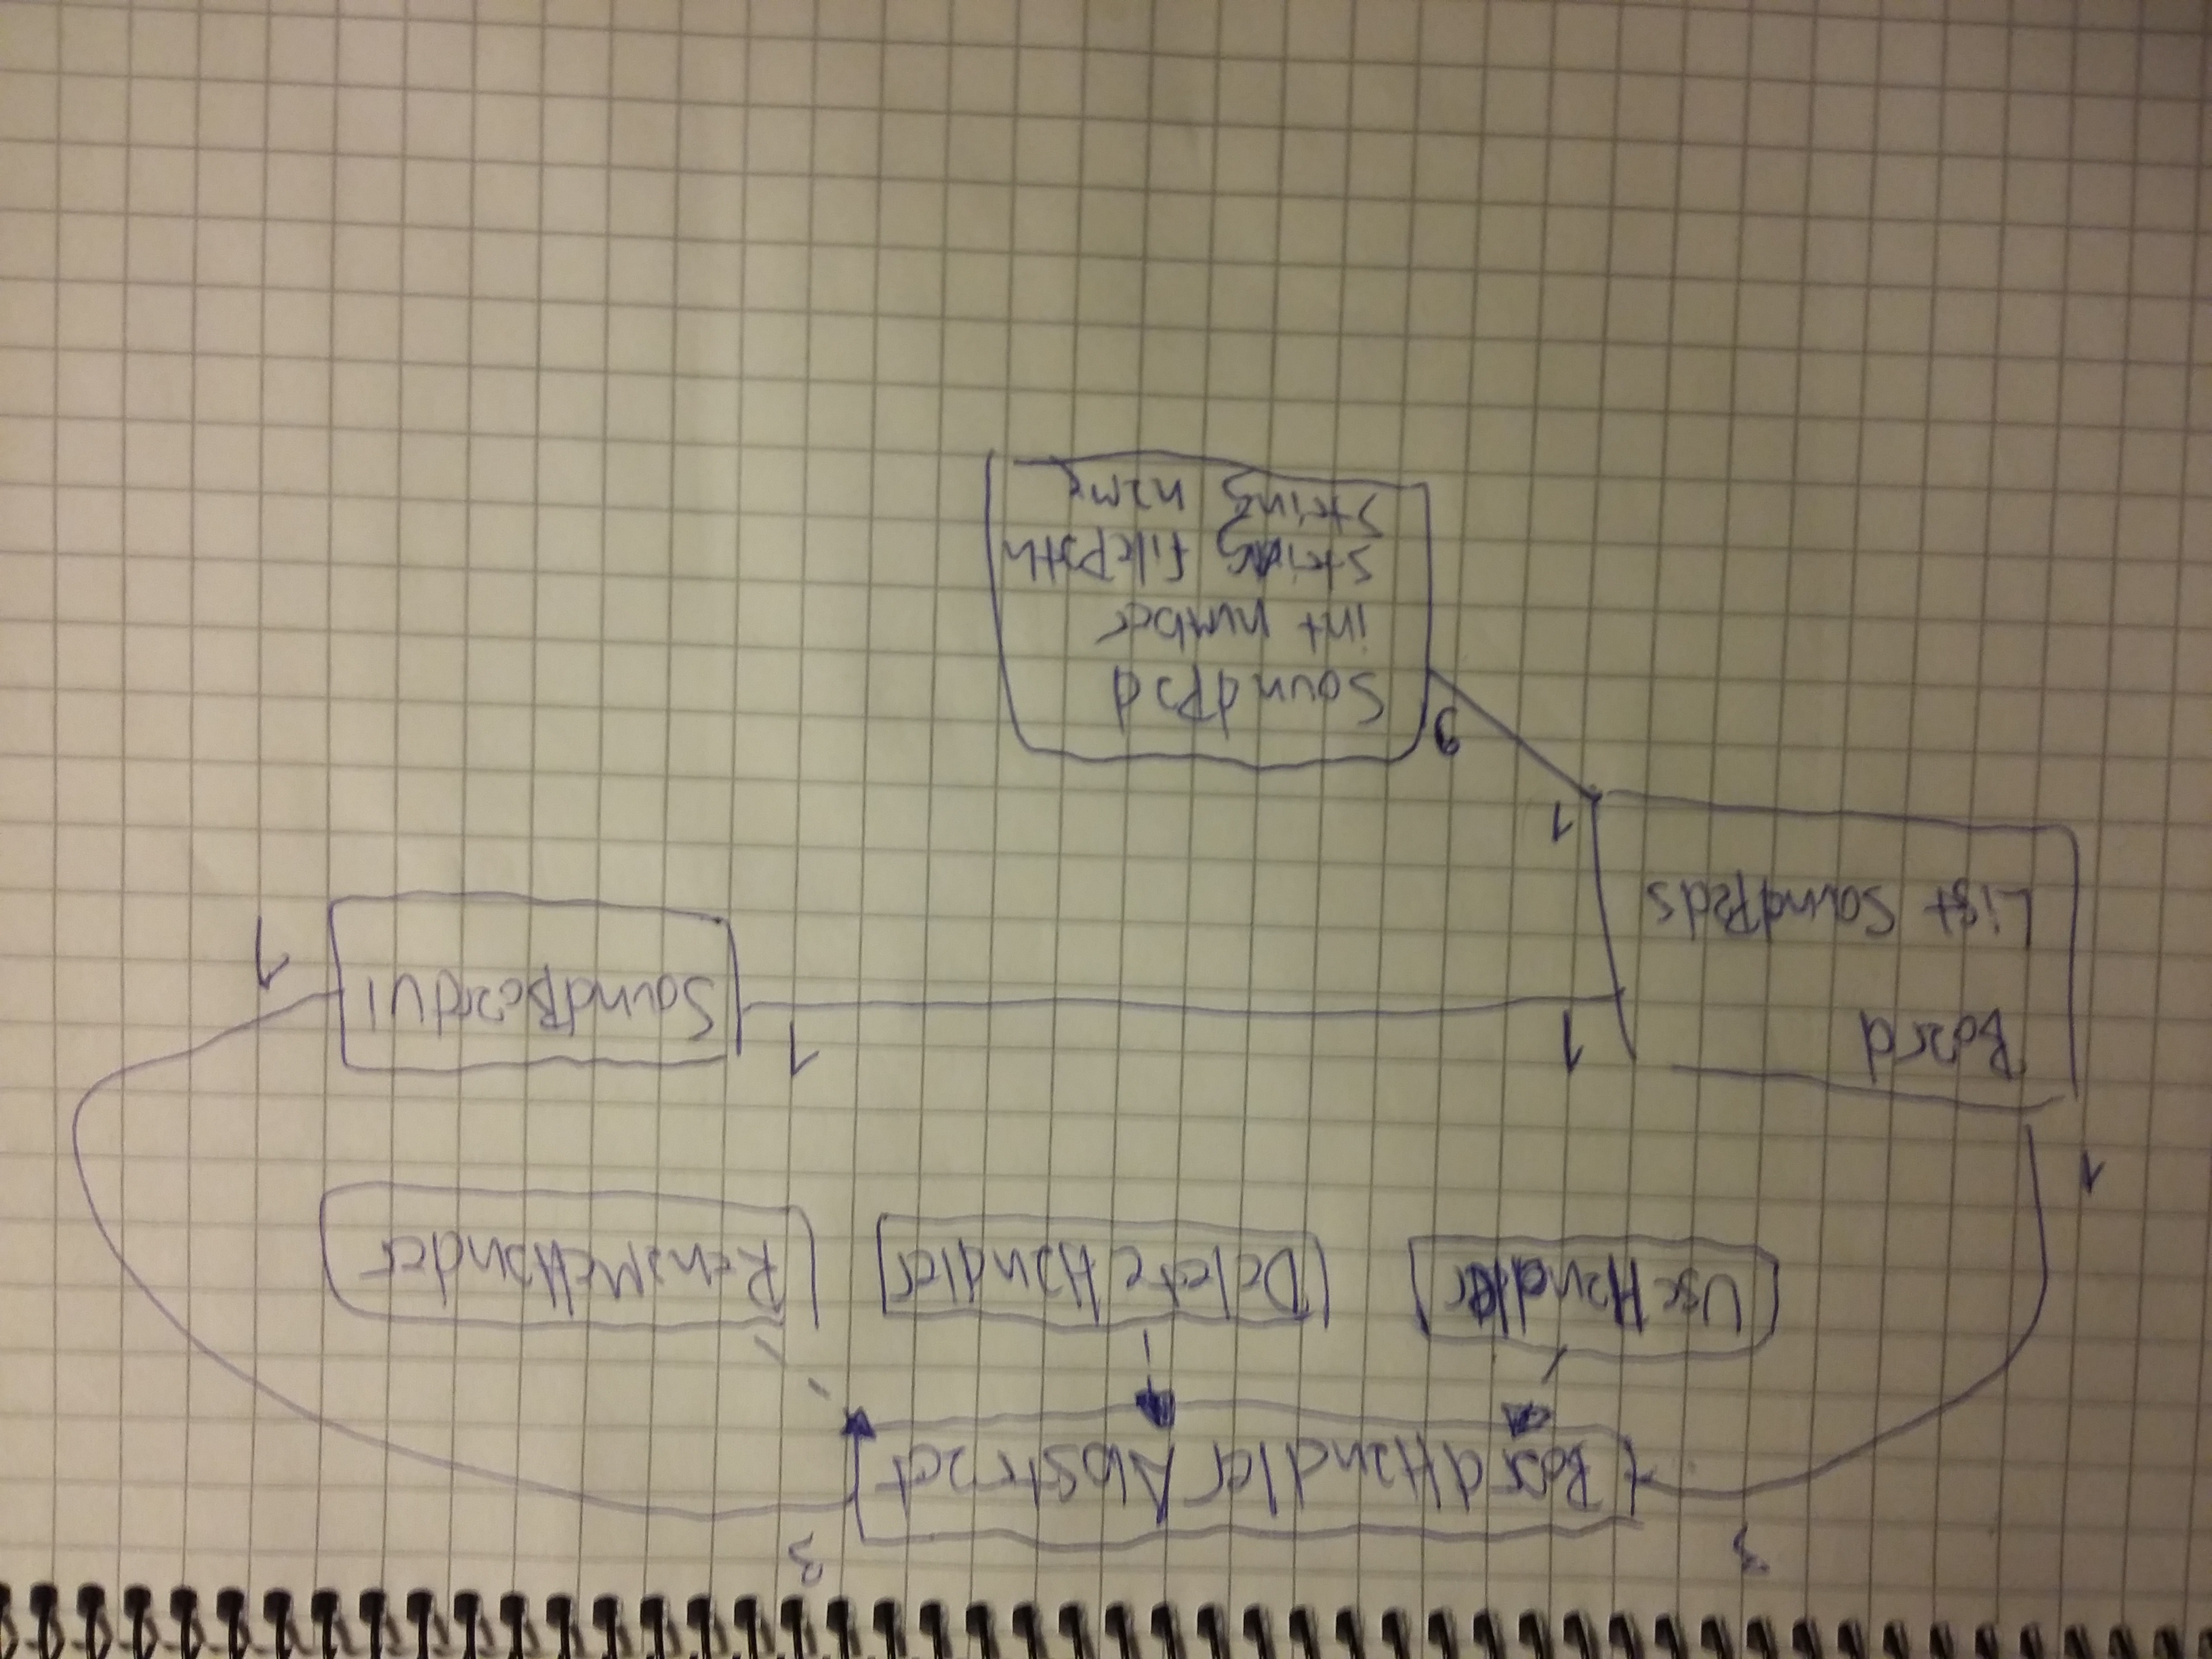 3 3
BoardHandlerAbstract
UseHandler DeleteHandler RenameHander
1
Board
1 1
SoundBoardUI
1
List SoundPads
1
9
SoundPad
int number
string filePath
String name